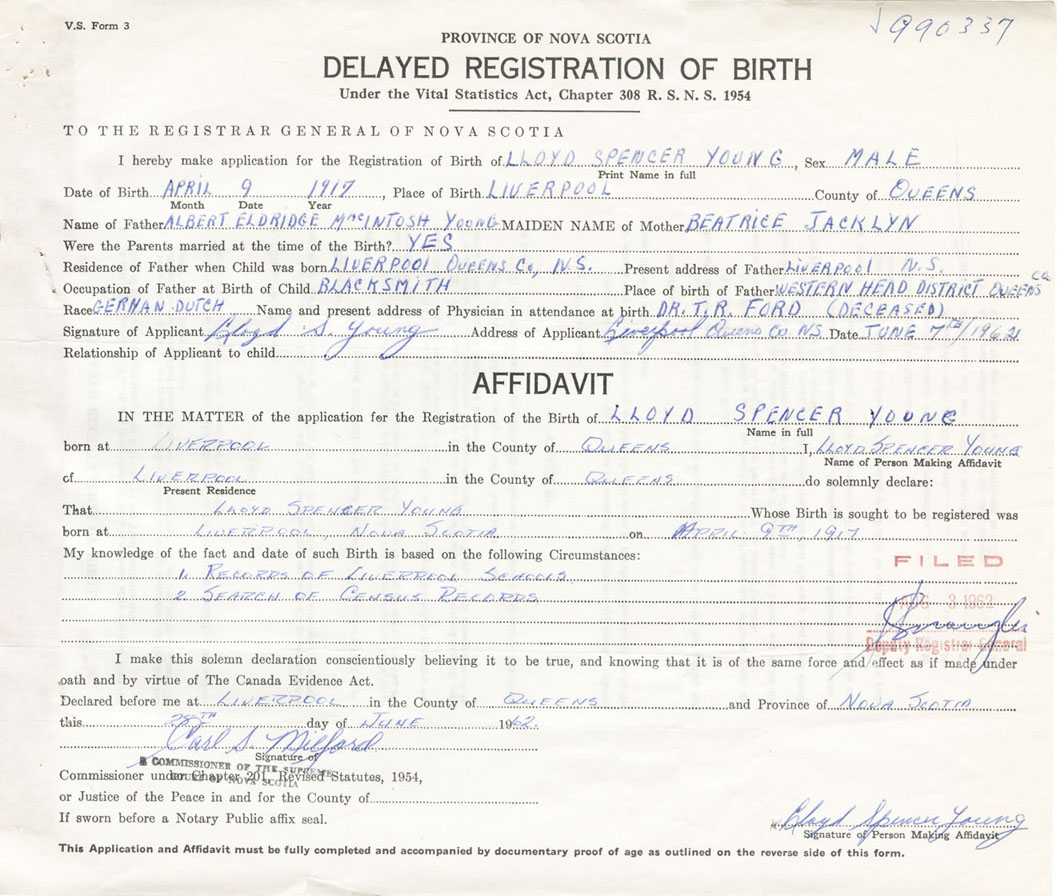 V.S. Form 3
990337
PROVINCE OF NOVA SCOTIA
DELAYED REGISTRATION OF BIRTH
Under the Vital Statistics Act, Chapter 308 R. S. N. S. 1954
TO THE REGISTRAR GENERAL OF NOVA SCOTIA
I hereby make application for the Registration of Birth of LLOYD SPENCER YOUNG, Sex MALE
Print Name in full
Date of Birth APRIL 9 1917, Place of Birth LIVERPOOL County of QUEENS
Month Date Year
Name of Father ALBERT ELDRIDGE MacINTOSH YOUNG MAIDEN NAME of Mother BEATRICE JACKLYN
Were the Parents married at the time of the Birth? YES
Residence of Father when Child was born LIVERPOOL QUEENS Co, N.S. Present address of Father LIVERPOOL N.S.
Occupation of Father at Birth of Child BLACKSMITH Place of birth of Father WESTERN HEAD DISTRICT QUEENS Co
Race GERMAN-DUTCH Name and present address of Physician in attendance at birth DR. T. R. FORD (DECEASED)
Signature of Applicant Lloyd S. Young Address of Applicant Liverpool Queens Co NS Date JUNE 7TH/1962
Relationship of Applicant to child
AFFIDAVIT
IN THE MATTER of the application for the Registration of the Birth of LLOYD SPENCER YOUNG
Name in full
born at LIVERPOOL in the County of QUEENS I, LLOYD SPENCER YOUNG
Name of Person Making Affidavit
of LIVERPOOL in the County of QUEENS do solemnly declare:
Present Residence
That LLOYD SPENCER YOUNG Whose Birth is sought to be registered was
born at LIVERPOOL, NOVA SCOTIA on APRIL 9TH, 1917
My knowledge of the fact and date of such Birth is based on the following Circumstances:
FILED
1. RECORDS OF LIVERPOOL SCHOOLS
2. SEARCH OF CENSUS RECORDS
AUG 3 1962
Deputy Registrar General
I make this solemn declaration conscientiously believing it to be true, and knowing that it is of the same force and effect as if made under
oath and by virtue of The Canada Evidence Act.
Declared before me at LIVERPOOL in the County of QUEENS and Province of NOVA SCOTIA
this day of JUNE 1962.
Carl S. Milford
Signature of
A COMMISSIONER OF THE SUPREME
COURT OF NOVA SCOTIA
Commissioner under Chapter 201, Revised Statutes, 1954,
or Justice of the Peace in and for the County of
If sworn before a Notary Public affix seal.
Lloyd Spencer Young
Signature of Person Making Affidavit
This Application and Affidavit must be fully completed and accompanied by documentary proof of age as outlined on the reverse side of this form.